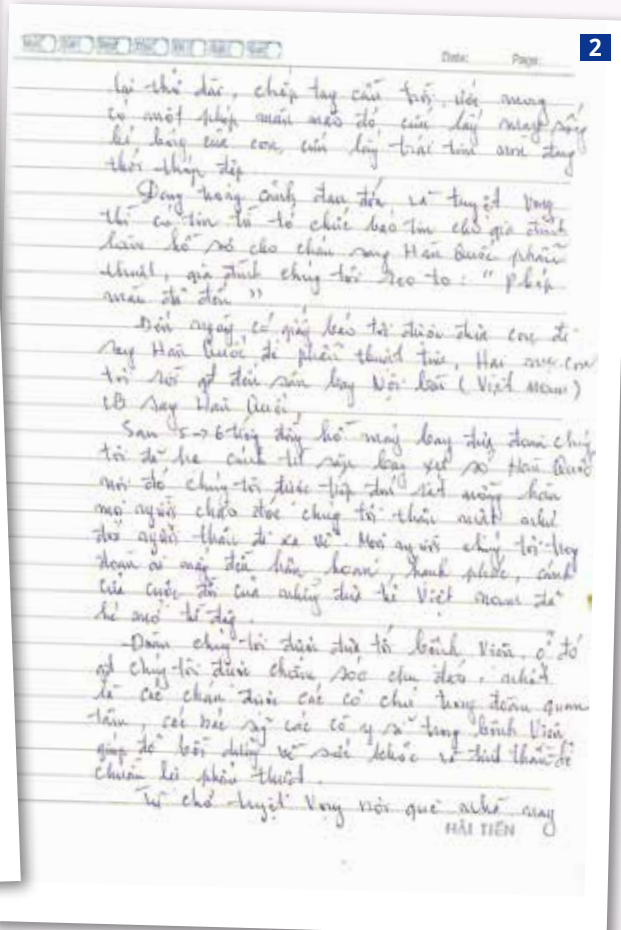 2
Date: Page:
lại thở dài, chắp tay cầu trời, ước mong
có một phép màu nào đó cứu lấy mạng sống
bé bỏng của con, cứu lấy trái tim non đang
thổi thấp
Đang trong cảnh đau đớn và tuyệt vọng
thì có tin từ tổ chức báo tin cho gia đình
làm hồ sơ cho cháu sang Hàn Quốc phẫu
thuật, gia đình chúng tôi reo to: " Phép
màu đã đến "
Đến ngày có giấy báo tôi được đưa con đi
sang Hàn Quốc để phẫu thuật tim, Hai mẹ con
tôi đến sân bay Nội bài ( Việt Nam )
bay Hàn Quốc,
Sau 5 → 6 tiếng đồng hồ máy bay đưa đoàn chúng
tôi đã hạ cánh từ sân bay xứ sở Hàn Quốc
nơi đó chúng tôi được tiếp đón rất nồng hậu
mọi người chào đón chúng tôi thân mật như
đón người thân đi xa về. Mọi người chúng tôi trong
đoàn ai nấy đều hân hoan, hạnh phúc, cánh
cửa cuộc đời của những đứa trẻ Việt Nam đã
hé mở từ đây.
Đoàn chúng tôi được đưa tới bệnh viện, ở đó
chúng tôi được chăm sóc chu đáo, nhất
là các cháu được các cô chú trong đoàn quan
tâm, các bác sỹ các cô y sĩ trong bệnh viện
giúp đỡ bồi dưỡng về sức khỏe và tinh thần để
chuẩn bị phẫu thuật.
Từ chỗ tuyệt vọng nơi quê nhà nay
HẢI TIẾN